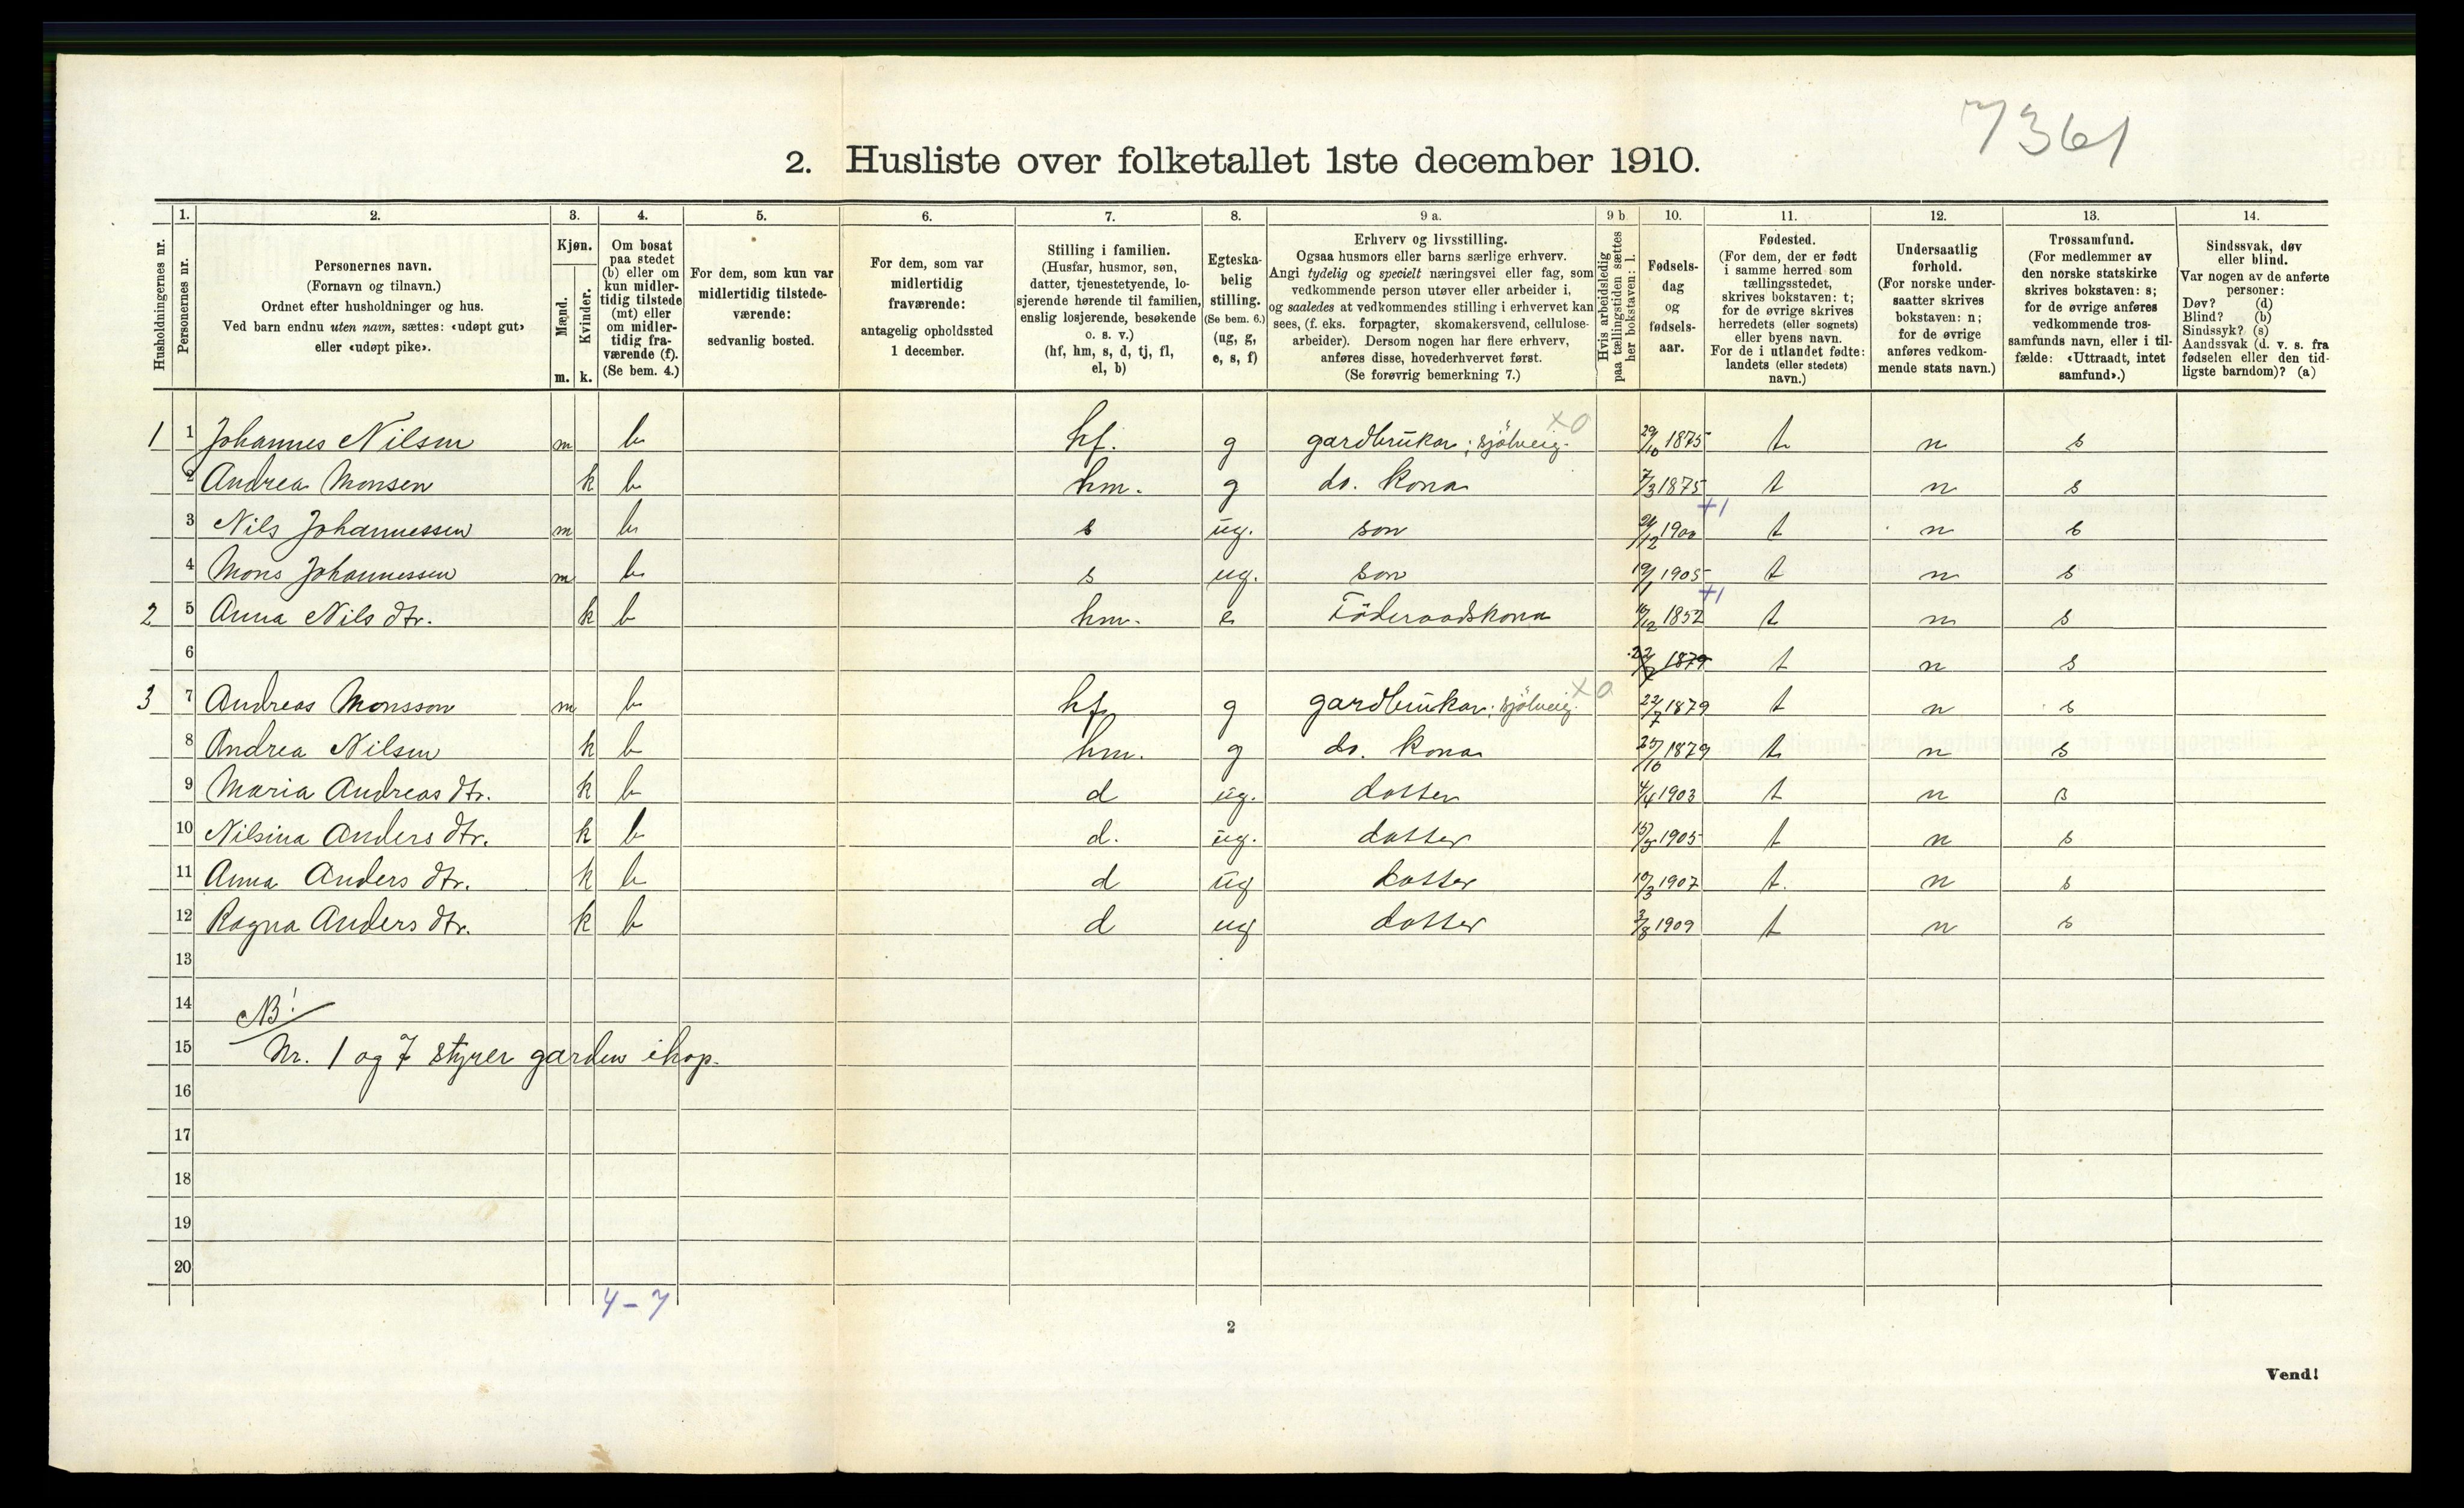 7361
2. Husliste over folketallet 1ste december 1910.
Husholdningernes nr.
1. Personernes nr.
2. Personernes navn.
(Fornavn og tilnavn.)
Ordnet efter husholdninger og hus.
Ved barn endnu uten navn, sættes: «udøpt gut»
eller «udøpt pike».
3. Kjøn.
Mænd. m.
Kvinder. k.
4. Om bosat
paa stedet
(b) eller om
kun midler-
tidig tilstede
(mt) eller
om midler-
tidig fra-
værende (f).
(Se bem. 4.)
5. For dem, som kun var
midlertidig tilstede-
værende:
sedvanlig bosted.
6. For dem, som var
midlertidig
fraværende:
antagelig opholdssted
1 december.
7. Stilling i familien.
(Husfar, husmor, søn,
datter, tjenestetyende, lo-
sjerende hørende til familien,
enslig losjerende, besøkende
o. s. v.)
(hf, hm, s, d, tj, fl,
el, b)
8. Egteska-
belig
stilling.
(Se bem. 6.)
(ug, g,
e, s, f)
9 a. Erhverv og livsstilling.
Ogsaa husmors eller barns særlige erhverv.
Angi tydelig og specielt næringsvei eller fag, som
vedkommende person utøver eller arbeider i,
og saaledes at vedkommendes stilling i erhvervet kan
sees, (f. eks. forpagter, skomakersvend, cellulose-
arbeider). Dersom nogen har flere erhverv,
anføres disse, hovederhvervet først.
(Se forøvrig bemerkning 7.)
9 b Hvis arbeidsledig
paa tællingstiden sættes
her bokstaven: l.
10. Fødsels-
dag
og
fødsels-
aar.
11. Fødested.
(For dem, der er født
i samme herred som
tællingsstedet,
skrives bokstaven: t;
for de øvrige skrives
herredets (eller sognets)
eller byens navn.
For de i utlandet fødte:
landets (eller stedets)
navn.)
12. Undersaatlig
forhold.
(For norske under-
saatter skrives
bokstaven: n;
for de øvrige
anføres vedkom-
mende stats navn.)
13. Trossamfund.
(For medlemmer av
den norske statskirke
skrives bokstaven: s;
for de øvrige anføres
vedkommende tros-
samfunds navn, eller i til-
fælde: «Uttraadt, intet
samfund».)
14. Sindssvak, døv
eller blind.
Var nogen av de anførte
personer:
Døv? (d)
Blind? (b)
Sindssyk? (s)
Aandssvak (d. v. s. fra
fødselen eller den tid-
ligste barndom)? (a)
1 1 Johannes Nilsen m b hf. g gardbrukar; sjölveig. x0 29/10 1875 t n s
2 Andrea Monsen k b hm. g do. kona 7/3 1875 t n s
3 Nils Johannessen m b s ug. son 24/12 1900 +1 t n s
4 Mons Johannessen m b s ug. son 19/1 1905 t n s
2 5 Anna Nils dtr. k b hm. e Föderaadskona 10/12 1852 +1 t n s
6 22/7 1879 t n s
3 7 Andreas Monsson m b hf g gardbrukar; sjölveig. x0 22/7 1879 t n s
8 Andrea Nilsen k b hm. g do. kona 25/10 1879 t n s
9 Maria Andreas dtr. k b d ug. dotter 4/4 1903 t n s
10 Nilsina Anders dtr. k b d. ug. dotter 1905 t n s
11 Anna Anders dtr. k b d ug dotter 10/3 1907 t. n s
12 Ragna Anders dtr. k b d ug dotter 3/8 1909 t n s
13
14 NB!
15 Nr. 1 og 7 styrer garden ihop.
16
17
18
19
20
4 - 7
2
Vend!